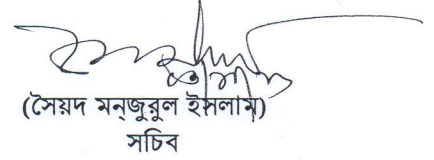 (সৈয়দ মন্‌জুরুল ইসলাম)
সচিব